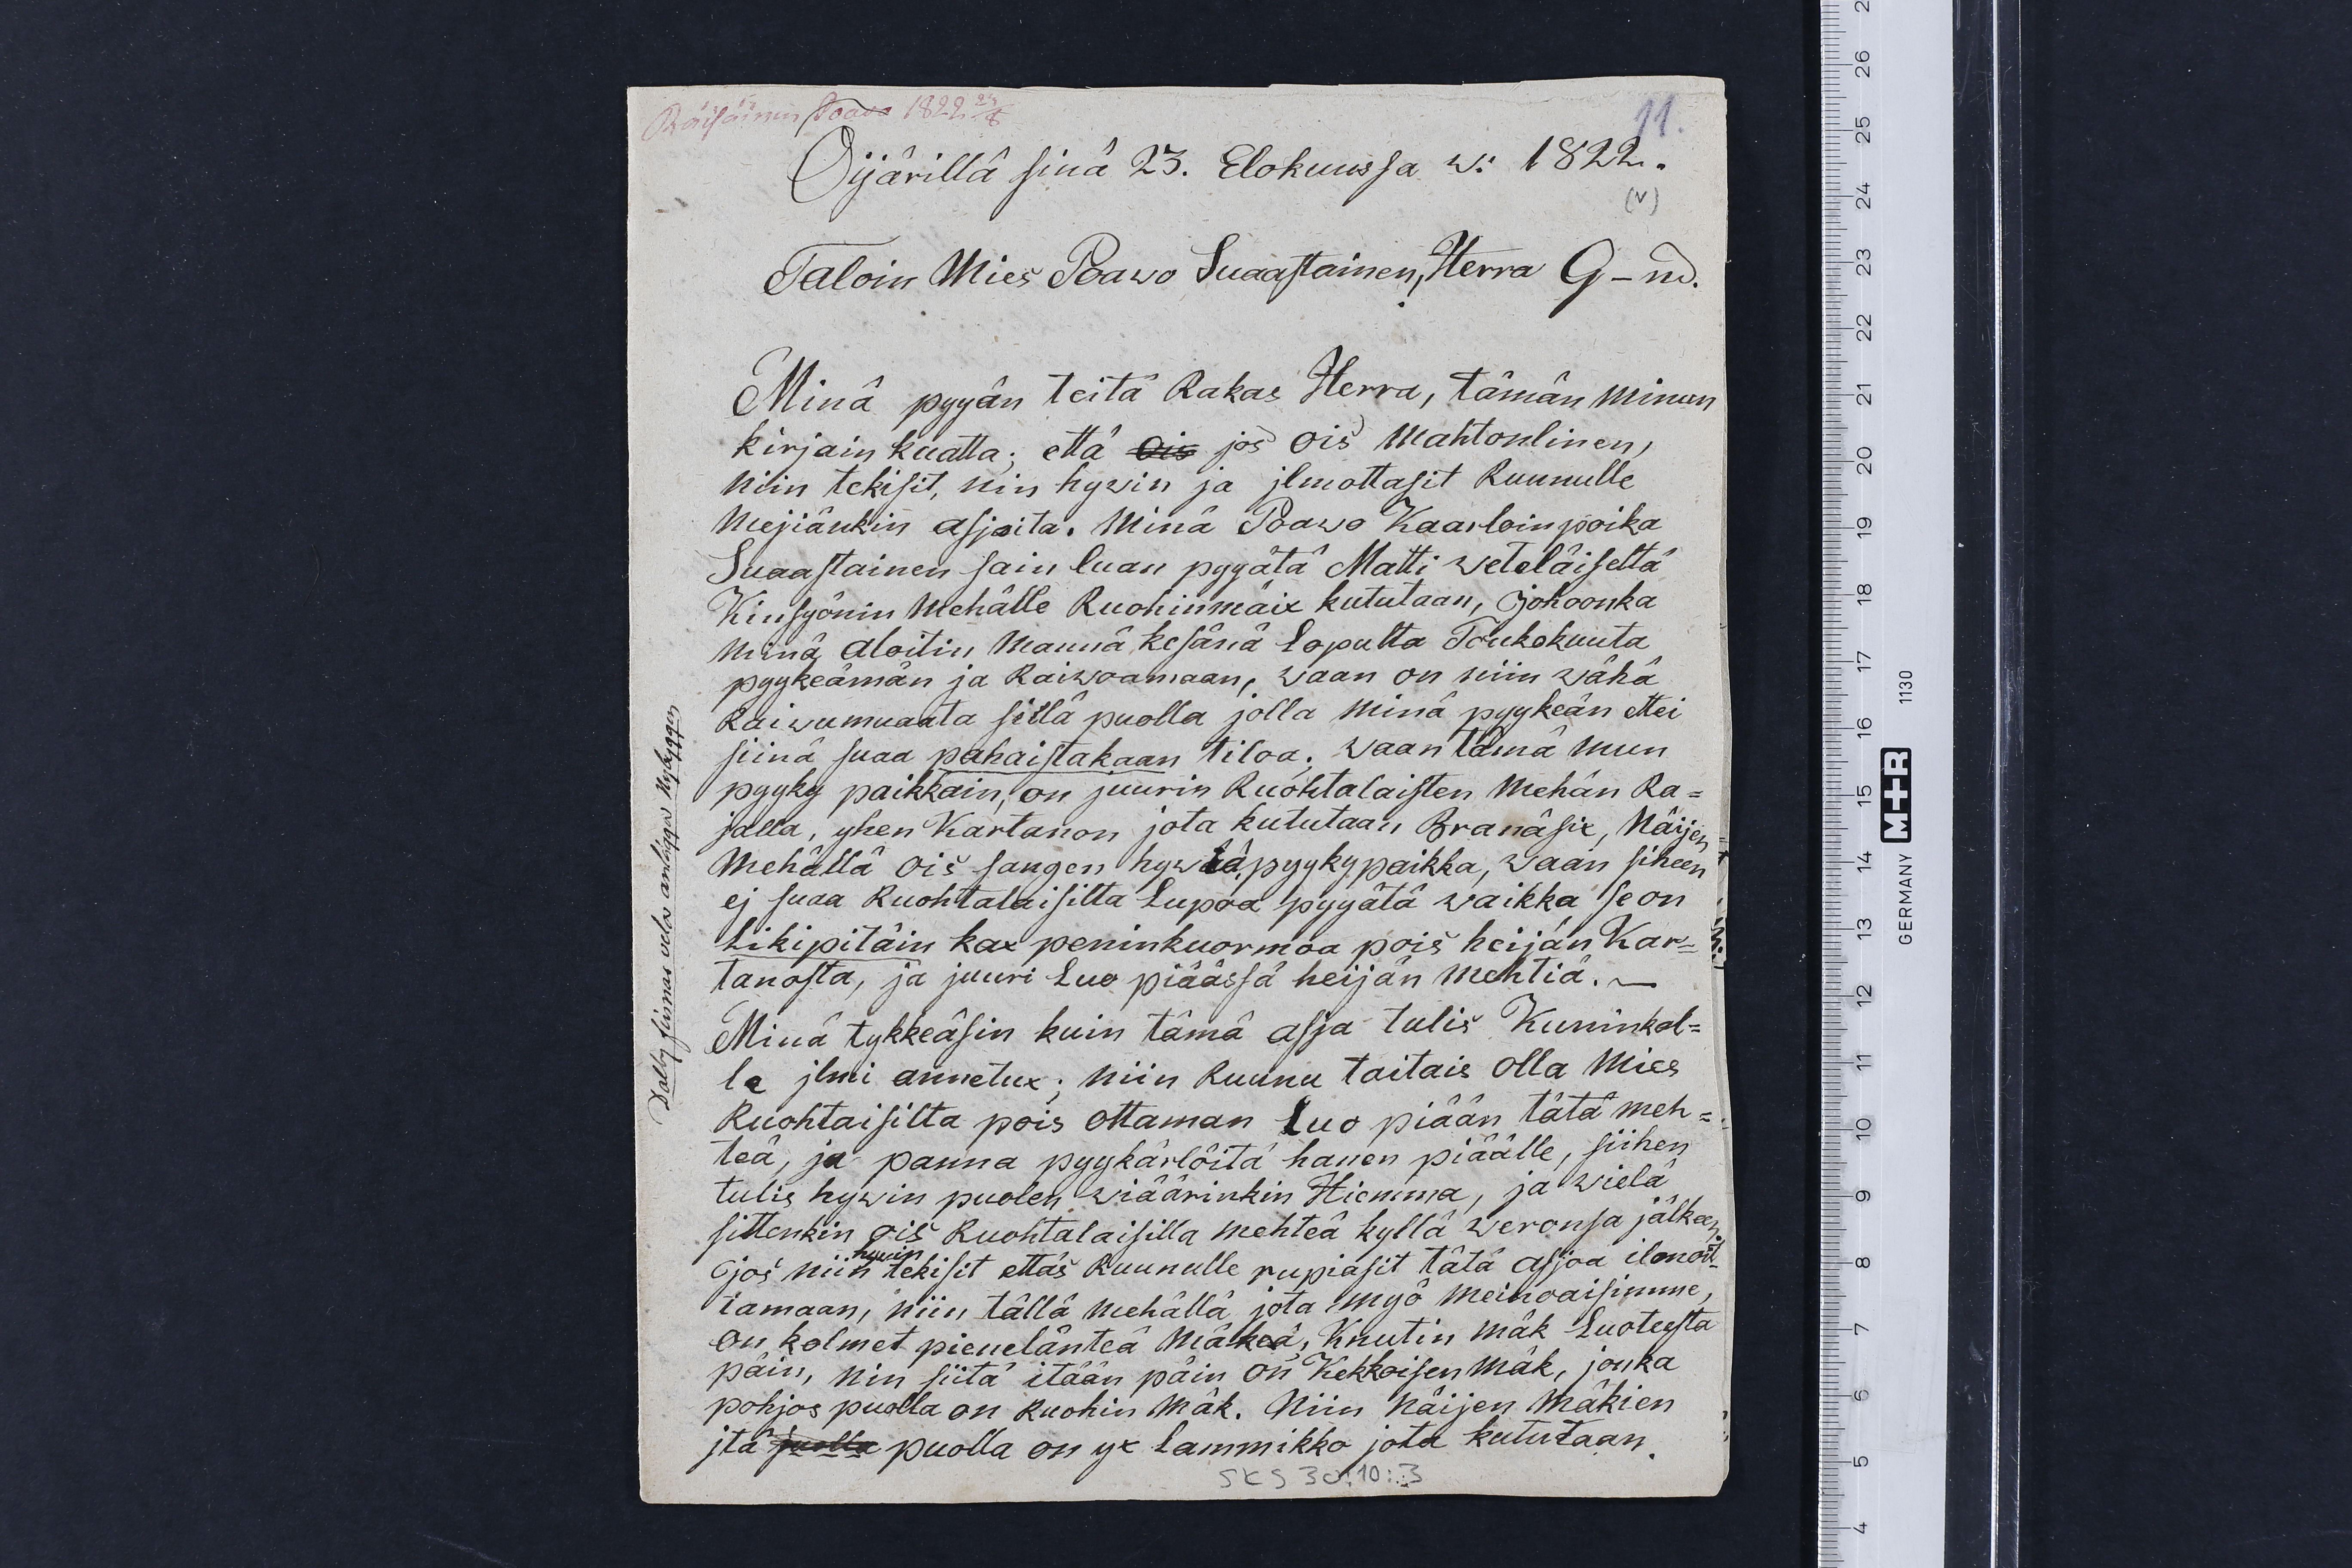 Räisäinen Poavo 1822 23/8
11.
Öijärillä sinä 23. Elokuussa w: 1822.
(v)
Taloin Mies Poawo Suaastainen, Herra G-nd.
Minä pyyän teitä Rakas Herra, tämän minun
kirjain kuatta; että ois jos ois mahtonlinen,
niin tekisit, nin hywin ja jlmottasit Ruunulle
mejiänkin asjoita. Minä Poawo Kaarloinpoika
Suaastainen sain luan pyyätä Matti weteläiseltä
Kinsyönin mehälle Ruohinmäix kututaan, johoonka
minä aloitin mannä kesänä loputta Toukokuuta
pyykeämän ja Raiwoamaan, waan on niin wähä
Raiwumuaata sillä puolla jolla minä pyykeän ettei
siinä suaa pahaistakaan tiloa; waan tämä mun
pyyky paikkain, on juurin Ruohtalaisten mehän Ra=
jalla, yhen Kartanon jota kututaan Branäsix, Näijen
mehällä ois sangen hywää pyykypaikka, waan siheen
ej suaa Ruohtalaisilta Lupoa pyyätä waikka se on
Likipitäin kax peninkuormoa pois heijän Kar=
tanosta, ja juuri Luo piäässä heijän mehtiä.
Minä tykkeäsin kuin tämä asja tulis Kuninkal=
le jlmi annetux; niin Ruunu taitais olla mies
Ruohtaisilta pois ottaman Luo piään tätä meh=
teä, ja panna pyykärlöitä hanen piäälle, siihen
tulis hywin puolen wiäärinkin Hiemma, ja wielä
sittenkin ois Ruohtalaisilla mehteä kyllä weronsa jälkeen,
jos niin hywin tekisit ettäs Ruunulle rupiasit tätä asjoa ilmoit=
tamaan, niin tällä mehällä jota myö meinoaisimme,
on kolmet pienelänteä mäkeä, Knutin mäk Luoteesta
päin, nin siitä itään päin on Kekkoisen mäk, jonka
pohjos puolla on Ruohin mäk. Niin Näijen mäkien
jtä puolla puolla on yx Lammikko jota kututaan.
SKS 30:10:3
Dalby finnas velo anlägga Nybyggen